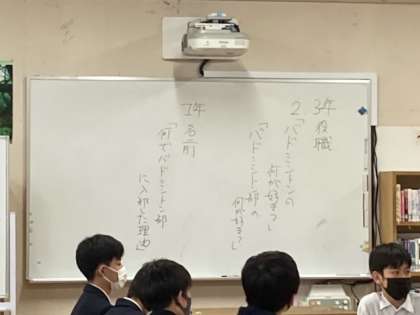 2、3年
役職
「バドミントンの
何が好き？」
「バドミントン部の
何が好き？」
1年
名前
「何でバドミントン部
に入部した理由」